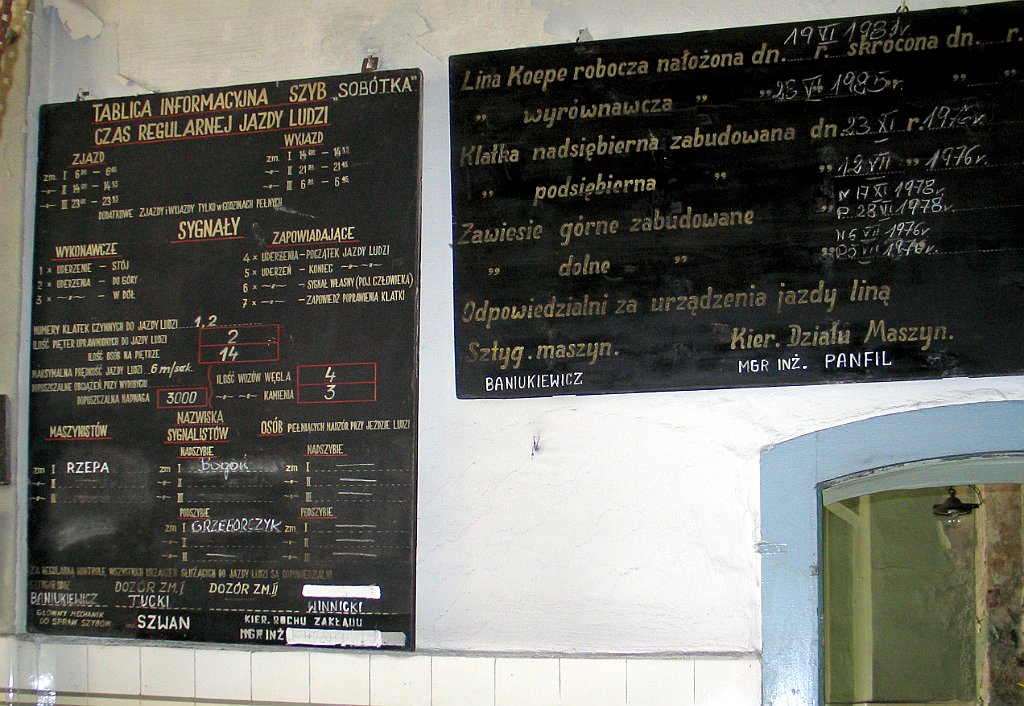 TABLICA INFORMACYJNA SZYB „SOBÓTKA"
CZAS REGULARNEJ JAZDY LUDZI
ZJAZD
zm. I 6 – 6
II 14 – 14
III 23 – 23
WYJAZD
zm. I 14 – 14
II 21 – 21
III 6 – 6
DODATKOWE ZJAZDY I WYJAZDY TYLKO w GODZINACH PEŁNYCH
SYGNAŁY
WYKONAWCZE
1 × UDERZENIE – STÓJ
2 × UDERZENIA – DO GÓRY
3 × –〃– – W DÓŁ
ZAPOWIADAJĄCE
4 × UDERZENIA – POCZĄTEK JAZDY LUDZI
5 × UDERZEŃ – KONIEC –〃–〃–
6 × –〃– – SYGNAŁ WŁASNY (POJ. CZŁOWIEKA)
7 × –〃– – ZAPOWIEDŹ POPRAWIENIA KLATKI
NUMERY KLATEK CZYNNYCH DO JAZDY LUDZI 1,2
ILOŚĆ PIĘTER UPRAWNIONYCH DO JAZDY LUDZI 2
ILOŚĆ OSÓB NA PIĘTRZE 14
MAKSYMALNA PRĘDKOŚĆ JAZDY LUDZI 6 m/sek.
DOPUSZCZALNE OBCIĄŻEŃ. PRZY WYDOBYCIU
ILOŚĆ WOZÓW WĘGLA 4
DOPUSZCZALNA NADWAGA 3000
–〃–〃– KAMIENIA 3
NAZWISKA
MASZYNISTÓW SYGNALISTÓW OSÓB PEŁNIĄCYCH NADZÓR PRZY JEŹDZIE LUDZI
NADSZYBIE NADSZYBIE
zm I RZEPA zm I Bogoń zm I
II II II
III III III
PODSZYBIE PODSZYBIE
zm I GRZEGORCZYK zm I
II II
III III
ZA REGULARNĄ KONTROLĘ, WSZYSTKICH URZĄDZEŃ SŁUŻĄCYCH DO JAZDY LUDZI SĄ ODPOWIEDZIALNI
DOZÓR ZM. I DOZÓR ZM. II
BANIUKIEWICZ TUCKI WINNICKI
GŁÓWNY MECHANIK
DO SPRAW SZYBÓW SZWAN KIER. RUCHU ZAKŁADU
MGR INŻ
Lina Koepe robocza nałożona dn. 19 VI 1981 r. skrócona dn. r.
„ wyrównawcza „ „ 1985 r. „ „
Klatka nadsiębierna zabudowana dn. 23 XI r. 1976r.
„ podsiębierna „ „ 12 VII „ 1976 r.
Zawiesie górne zabudowane „ N 17 XI 1978r.
P. 28 VI 1978r.
„ dolne „ „ N 6 VII 1976r
P 05 VII 1976r.
Odpowiedzialni za urządzenia jazdy liną
Sztyg. maszyn. Kier. Działu Maszyn.
BANIUKIEWICZ MGR INŻ. PANFIL